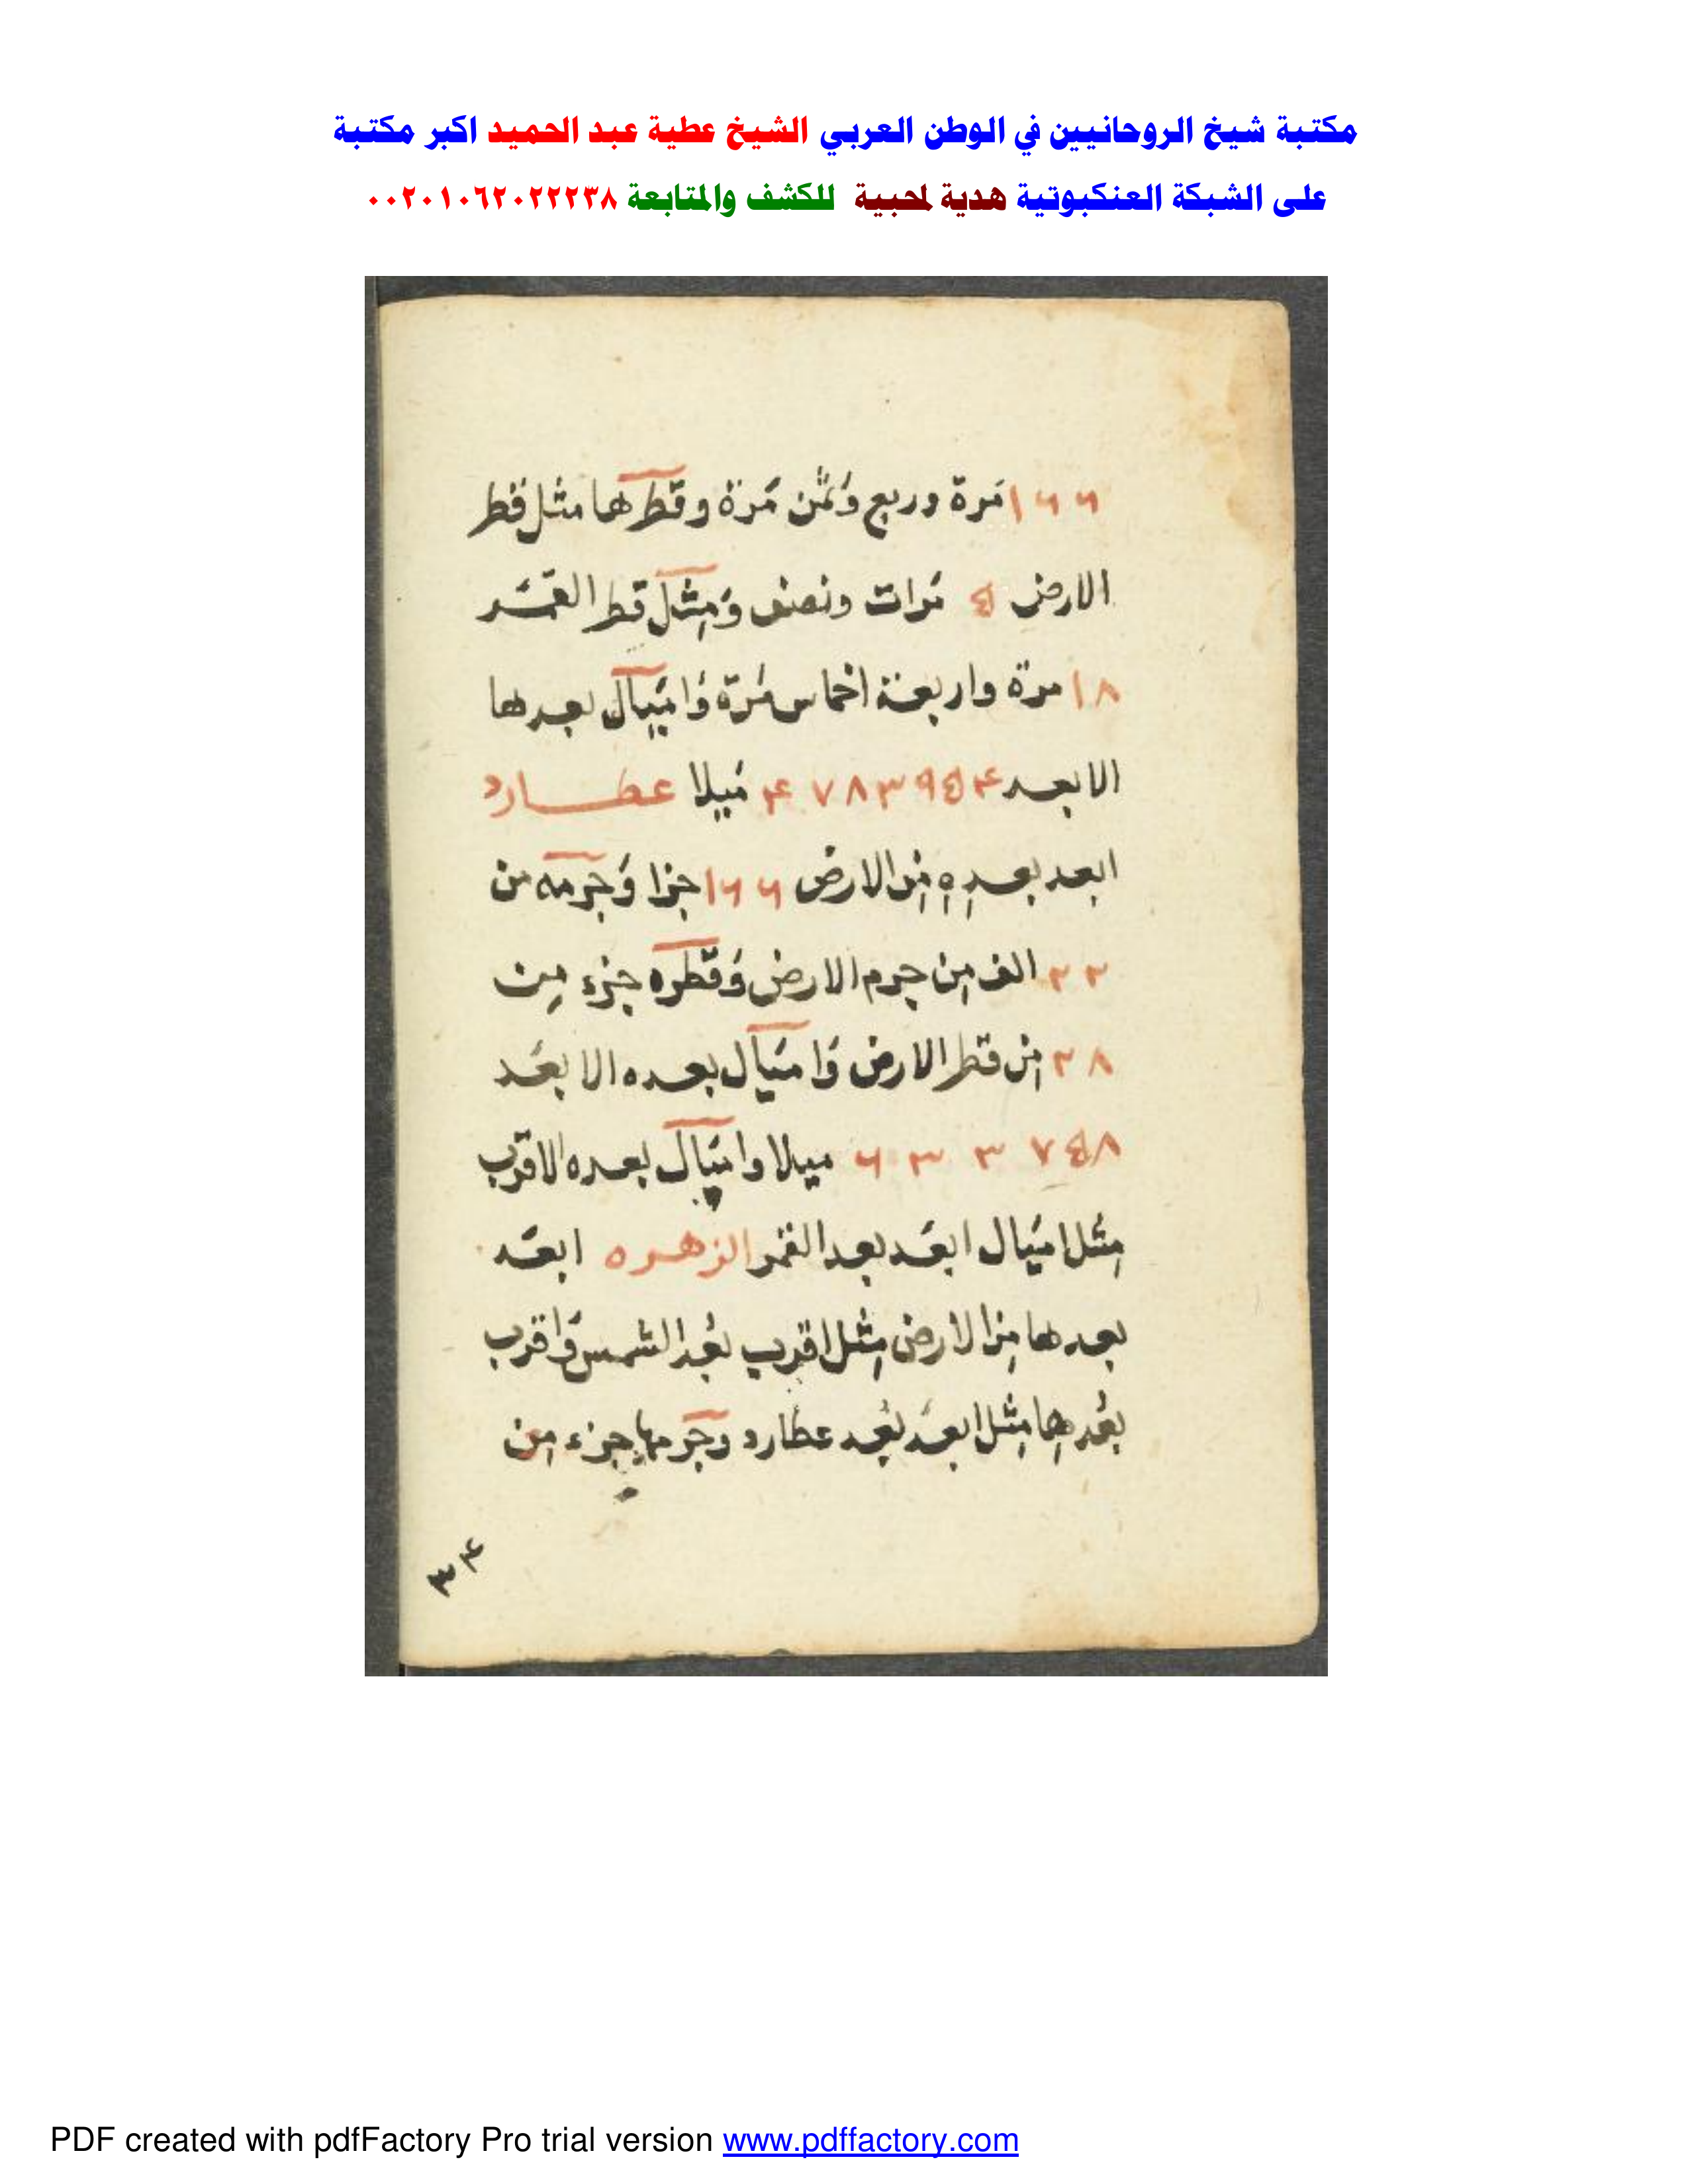 مكتبة شيخ الروحانيين في الوطن العربي الشيخ عطية عبد الحميد اكبر مكتبة
على الشبكة العنكبوتية هدية لمحبية للكشف والمتابعة ٠٠٢٠١٠٦٢٠٢٢٢٣٨
١٦٦ مرة وربع وثمن مرة وقطرها مثل قطر
الارض ٥ مرات ونصف ومثل قطر القمر
١٨ مرة واربعة اخماس مرة واميال بعدها
الابعد ميلا عطارد
ابعد بعده من الارض ١٦٦ جزا وجرمه من
الف من جرم الارض وقطره جزء من
من قطر الارض واميال بعده الابعد
ميلا واميال بعده الاقرب
مثل اميال ابعد بعد القمر الزهره ابعد
بعدها من الارض مثل اقرب بعد الشمس واقرب
بعدها مثل ابعد بعد عطارد وجرمها جزء من
PDF created with pdfFactory Pro trial version www.pdffactory.com